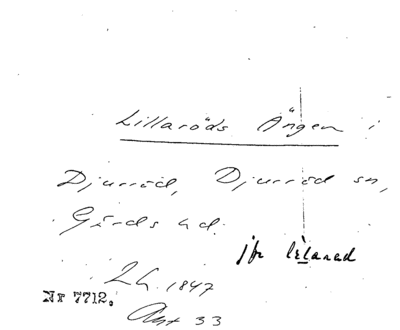 Lillaröds Ängen i
Djurröd, Djurröd sn,
Gärds hd.
jfr lelarød
LG. 1847
Nr 7712.
Akt 33